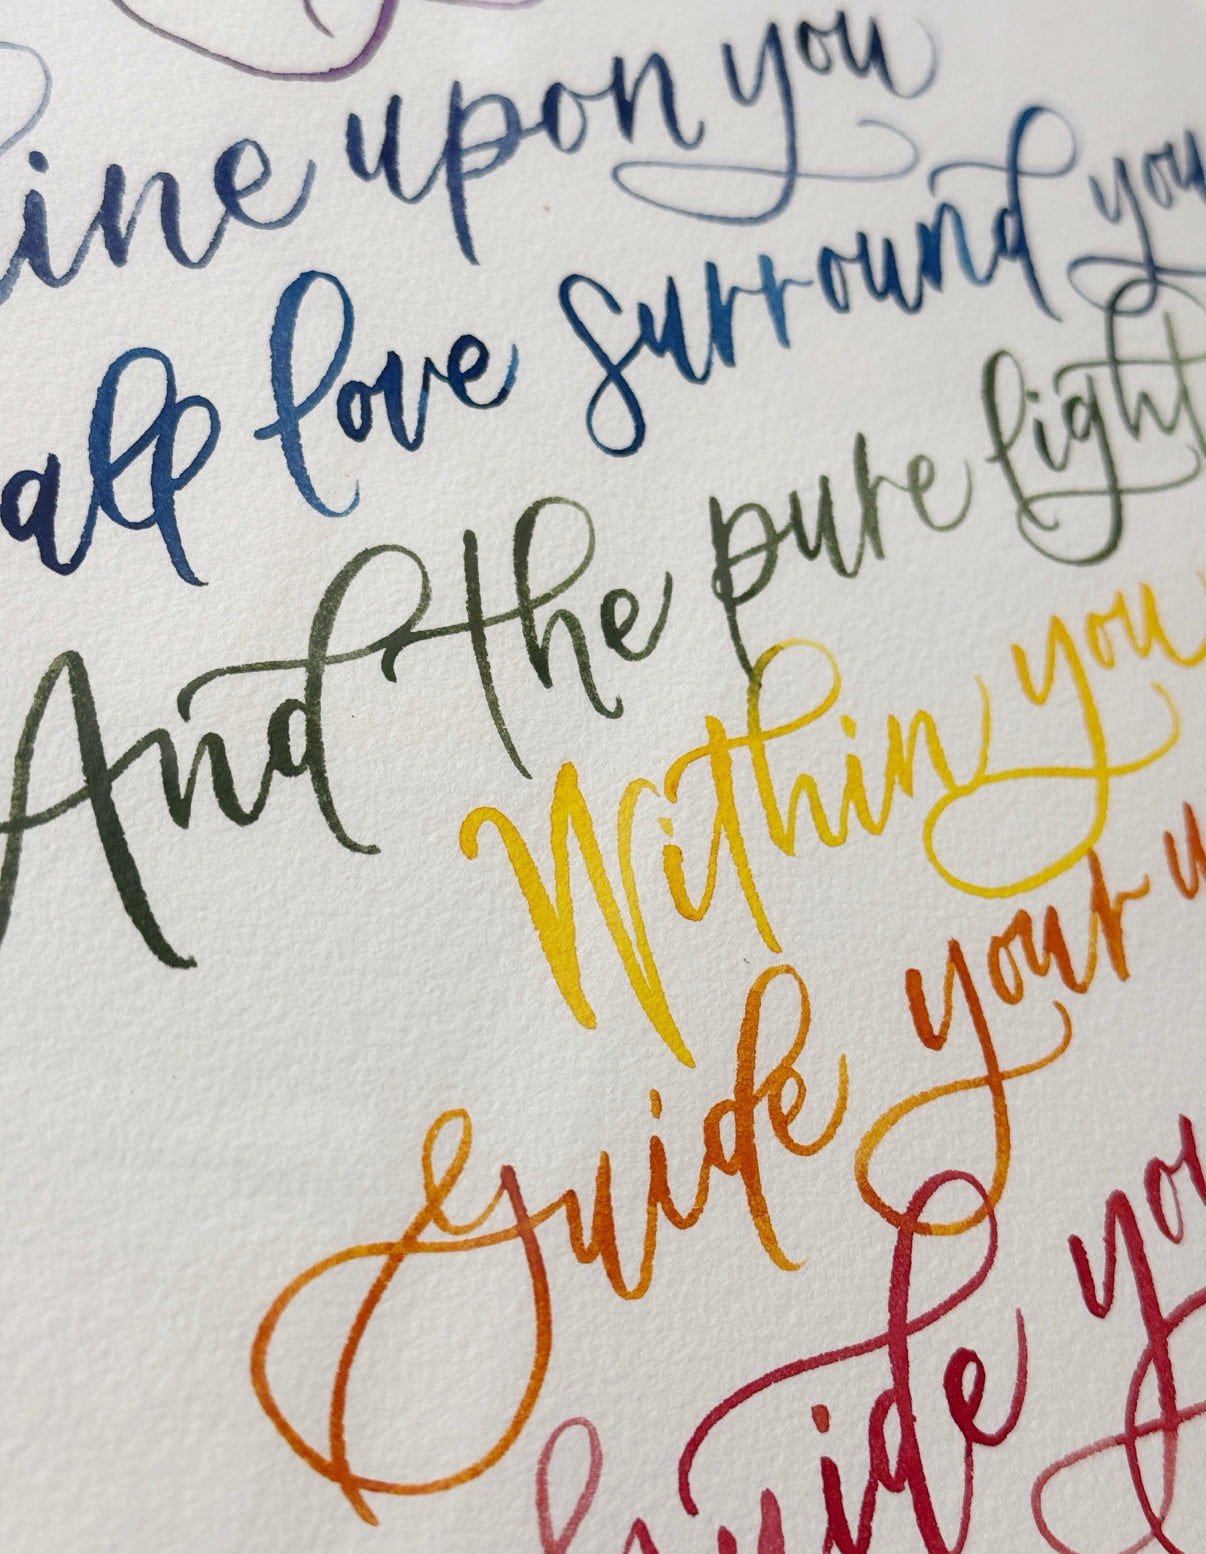 ine upon you
all love surround you
And the pure light
Within you
Guide your
Guide yo